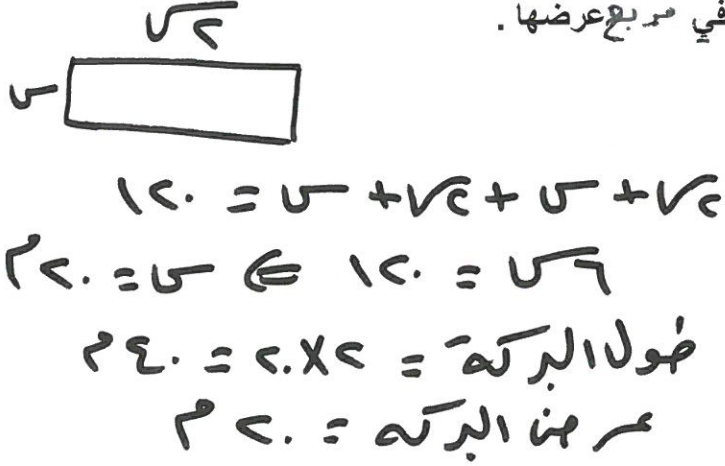 في مربع عرضها .
٢س
س
٢س + س + ٢س + س = ١٢٠
٦س = ١٢٠ ⇐ س = ٢٠م
طول البركة = ٢×٢٠ = ٤٠م
عرض البركة = ٢٠م